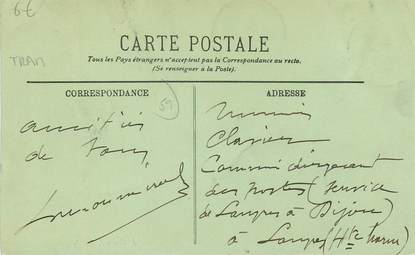 6€
TRAM
CARTE POSTALE
Tous les Pays étrangers n'acceptent pas la Correspondance au recto.
(Se renseigner à la Poste).
CORRESPONDANCE
59
amitiés
de tous
ADRESSE
Commis
des Postes (service
de Langres à Dijon)
à Langres (Hte Marne)